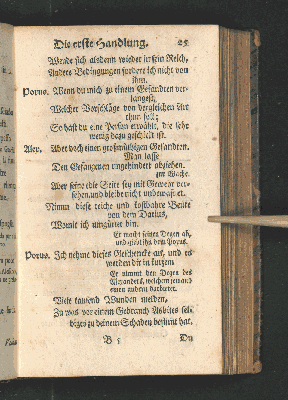 Die erste Handlung. 25
Wende sich alsdenn wieder in sein Reich,
Andere Bedingungen fordere ich nicht von
ihm.
Porus. Wenn du mich zu einem Gesandten ver-
langest,
Welcher Vorschläge von dergleichen Art
thun soll;
So hast du eine Person erwählt, die sehr
wenig dazu geschickt ist.
Alex. Aber doch einen großmüthigen Gesandten.
Man lasse
Den Gefangenen ungehindert abziehen.
zur Wache.
Aber seine edle Seite sey mit Gewehr ver-
sehen, und bleibe nicht unbewafnet.
Nimm diese reiche und kostbahre Beute
von dem Darius,
Womit ich umgürtet bin.
Er macht seinen Degen ab,
und giebt ihn dem Porus.
Porus. Ich nehme dieses Geschencke an, und es
werden dir in kurtzem
Er nimmt den Degen des
Alexanders, welchem jemand
einen andern darbietet.
Viele tausend Wunden melden,
Zu was vor einem Gebrauch Asbites sel-
biges zu deinem Schaden bestimt hat.
B 5 Du